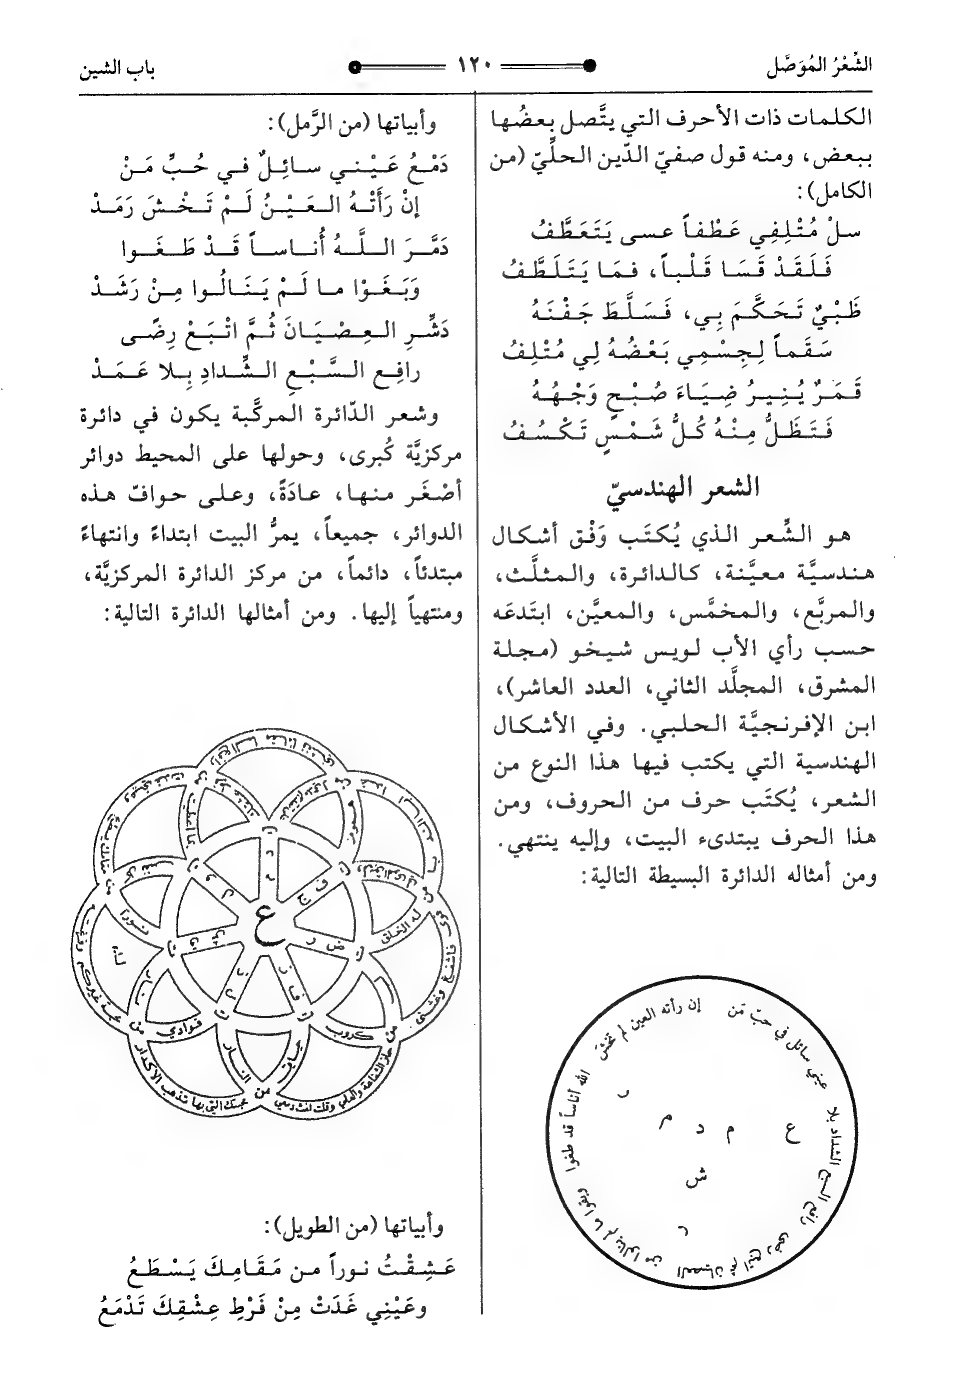 الشِّعْرُ المُوَصَّل
١٢٠
باب الشين
الكلمات ذات الأحرف التي يتَّصل بعضُها
ببعض، ومنه قول صفيّ الدّين الحلّيّ (من
الكامل):
سلْ مُتْلِفِي عَطْفاً عسى يَتَعَطَّفُ
فَلَقَدْ قَسَا قَلْباً، فمَا يَتَلَطَّفُ
ظَبْيٌ تَحَكَّمَ بِي، فَسَلَّطَ جَفْنَهُ
سَقَماً لِجِسْمِي بَعْضُهُ لِي مُتْلِفُ
قَمَرٌ يُنِيرُ ضِيَاءَ صُبْحٍ وَجْهُهُ
فَتَظَلُّ مِنْهُ كُلُّ شَمْسٍ تَكْسُفُ
الشعر الهندسيّ
هو الشِّعر الذي يُكتَب وَفْق أشكال
هندسيَّة معيَّنة، كالدائرة، والمثلَّث،
والمربَّع، والمخمَّس، والمعيَّن، ابتَدعَه
حسب رأي الأب لويس شيخو (مجلة
المشرق، المجلَّد الثاني، العدد العاشر)،
ابن الإفرنجيَّة الحلبي. وفي الأشكال
الهندسية التي يكتب فيها هذا النوع من
الشعر، يُكتَب حرف من الحروف، ومن
هذا الحرف يبتدىء البيت، وإليه ينتهي.
ومن أمثاله الدائرة البسيطة التالية:
إن رأته العين لم تخش
عيني سائل في حبّ مَن
الله أناساً قد طغوا
وبغوا ما لم ينالوا من
العصيان ثم اتبع رضى
رافع السبع الشداد بلا
ع
م
د
م
ر
ش
ر
وأبياتها (من الرَّمل):
دَمْعُ عَيْني سائِلٌ في حُبِّ مَنْ
إنْ رَأَتْهُ العَيْنُ لَمْ تَخْشَ رَمَدْ
دَمَّرَ اللَّهُ أُناساً قَدْ طَغَوا
وَبَغَوْا ما لَمْ يَنَالُوا مِنْ رَشَدْ
دَشِّرِ العِصْيَانَ ثُمَّ اتْبَعْ رِضًى
رافِعِ السَّبْعِ الشِّدادِ بِلا عَمَدْ
وشعر الدّائرة المركَّبة يكون في دائرة
مركزيَّة كُبرى، وحولها على المحيط دوائر
أصْغَر منها، عادَةً، وعلى حوافّ هذه
الدوائر، جميعاً، يمرُّ البيت ابتداءً وانتهاءً
مبتدئاً، دائماً، من مركز الدائرة المركزيَّة،
ومنتهياً إليها. ومن أمثالها الدائرة التالية:
ع
له الخلق
نورا
فؤادي
كروب
النار
من
وأبياتها (من الطويل):
عَشِقْتُ نوراً من مَقَامِكَ يَسْطَعُ
وعَيْنِي غَدَتْ مِنْ فَرْطِ عِشْقِكَ تَدْمَعُ